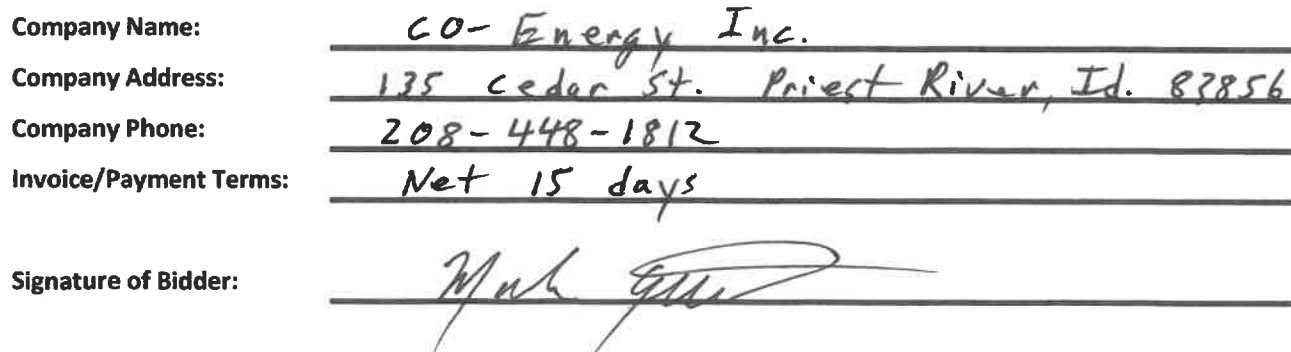 Company Name: CO-Energy Inc.
Company Address: 135 Cedar St. Priest River, Id. 83856
Company Phone: 208-448-1812
Invoice/Payment Terms: Net 15 days
Signature of Bidder: Mark